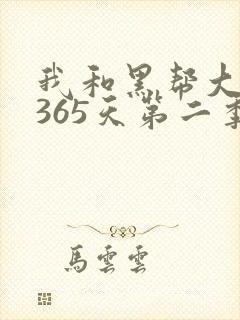 我和黑帮大
365天第二季
馬雲雲